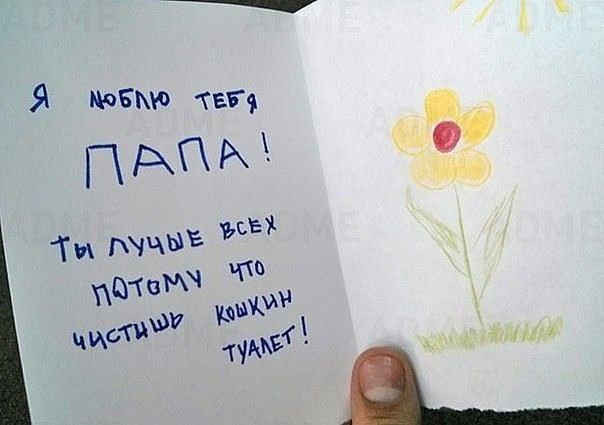 Я люблю тебя
ПАПА!
Ты лучше всех
потому что
чистишь кошкин
туалет!
ADME